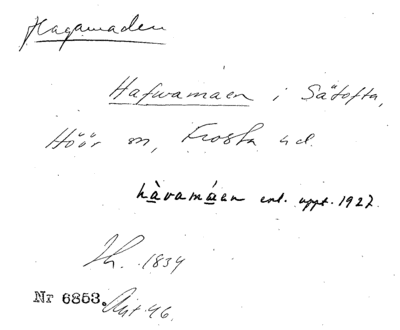 Hagamaden
Hafwamaen i Sätofta,
Höör sn, Frosta hd.
håvamáen enl. uppt. 1927
Th. 1834
Nr 6853.